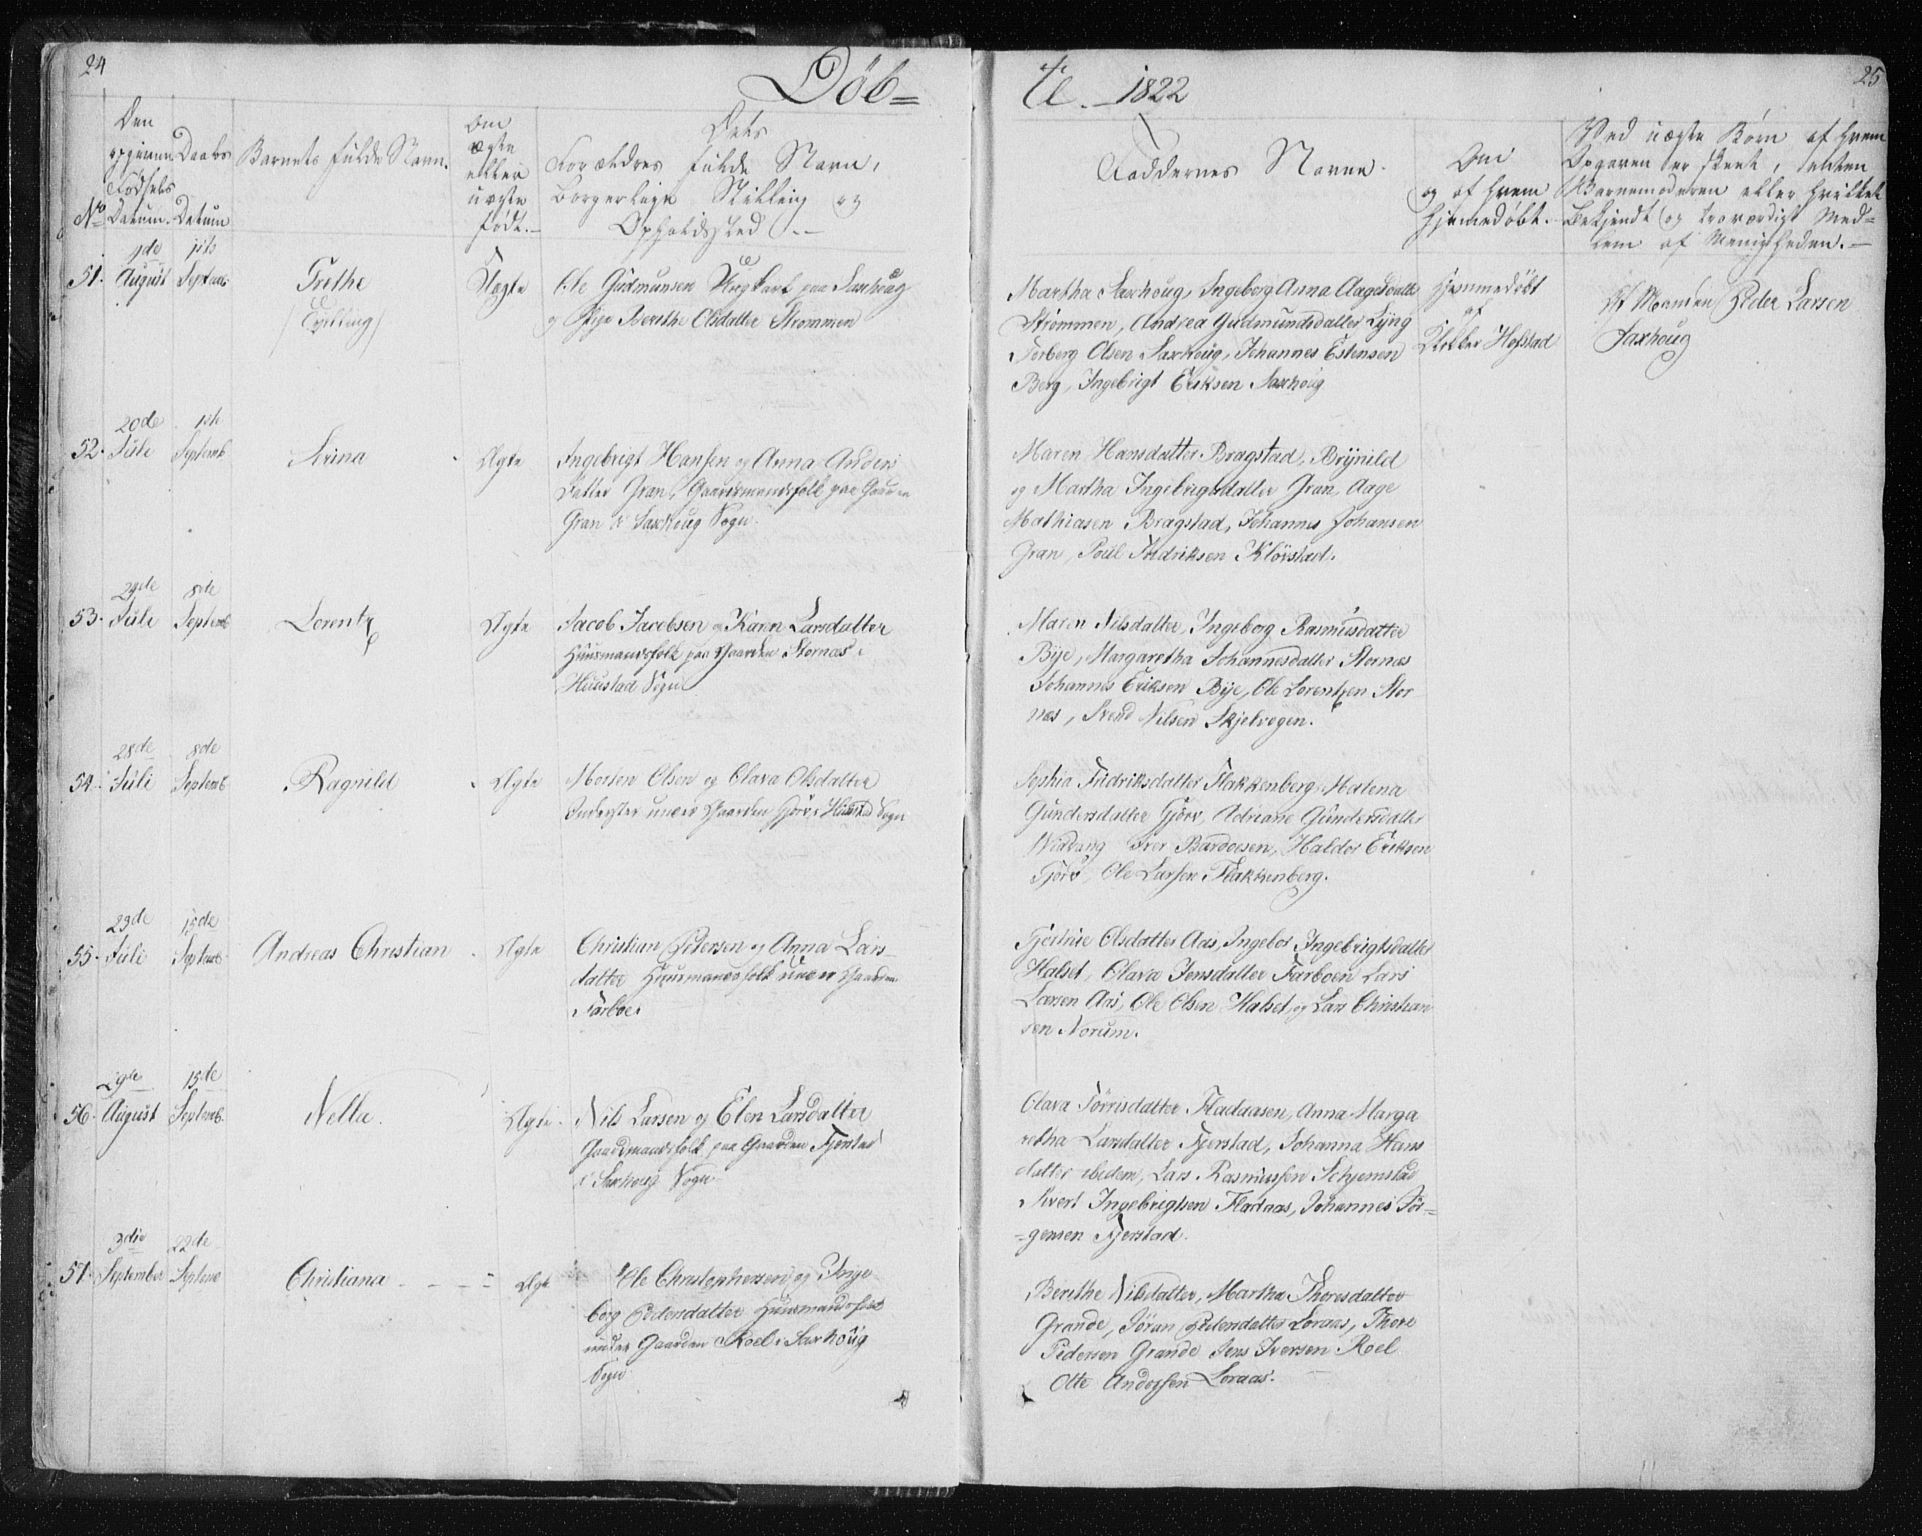 24
Døb=
te. - 1822
25
Den
opgivne Daabs
Fødsels
No Datum. Datum
Barnets fulde Navn.
Om
ægte
eller
uægte
født.
Dets
Forældres fulde Navn,
borgerlige Stilling og
Opholdssted
Faddernes Navne.
Om
og af hvem
hjemmedøbt.
Ved uægte Børn af hvem
Opgaven er skeet, enten
Barnemoderen eller hvilket
bekjendt og troværdigt Med=
lem af Menigheden.
51. August Septemb
Grethe
Uægte
Ole Gudmunsen Ungkarl paa Saxhoug
og Pige Berethe Olsdatter Strømmen
Martha Saxhoug, Ingeborg Anna Aagesdatter
Strømmen, Andrea Gudmundsdatter Lyng
Torberg Olsen Saxhoug, Johannes Estensen
Berg, Ingebrigt Eriksen Saxhoug
hjemmedøbt
af
Klokker Hofstad
Manden Peder Larsen
Saxhoug
20de
52. Juli Septemb
Ægte
Ingebrigt Hansen og Anna Anders
datter Gran, Gaardmandsfolk paa Gaarden
Gran i Saxhoug Sogn.
Maren Hansdatter Bragstad, Brynild
og Martha Ingebrigtsdatter Gran, Aage
Mathiasen Bragstad, Johannes Johansen
Gran, Poul Fredriksen Kløvstad.
29de 8de
53. Juli Septemb
Lorentz
Ægte
Jacob Jacobsen og Karen Larsdatter
Huusmandsfolk paa Gaarden Stornæs i
Huustad Sogn
Maren Nilsdatter, Ingeborg Rasmusdatter
Bye, Margaretha Johannesdatter Stornæs
Johannes Eriksen Bye, Ole Lorentzen Stor
næs, Svend Nilsen Skjelvogen.
28de 8de
54. Juli Septemb
Ragnild
Ægte
Morten Olsen og Olava Olsdatter
Inderster under Gaarden Gjørv i Huustad Sogn
Sophia Fridriksdatter Flakkenberg, Malena
Gundersdatter Gjørv, Adriane Gundersdatter
Iver Bardosen, Haldor Eriksen
Gjørv, Ole Larsen Flakkenberg.
23de 15de
55. Juli Septemb
Andreas Christian
Ægte
Christian Petersen og Anna Lars-
datter Huusmandsfolk under Gaarden
Olsdatter Aas, Ingebor Ingebrigtsdatter
Halset, Olava Jensdatter Tarboen Lars
Larsen Aas, Ole Olsen Halset, og Lars Christian
sen Norum.
15de
56. August Septemb.
Nella.
Ægte.
Nils Larsen og Elen Larsdatter
Gaardmandsfolk paa Gaarden Fjerstad
i Saxhoug Sogn
Olava Tørrisdatter Fladaasen, Anna Marga
retha Larsdatter Fjerstad, Johanna Hans
datter ibidem, Lars Rasmussen Schjemstad
Sivert Ingebrigtsen Fladaas, Johannes Jør=
=gensen Fjerstad.
3die 22de
57. September Septemb
Christiana
Ægte
Ole Christophersen og Inge
borg Pedersdatter Huusmandsfolk
under Gaarden Roel i Saxhoug
Sogn
Berethe Nilsdatter, Martha Thoresdatter
Grande, Jøran Pedersdatter Loraas, Thore
Pedersen Grande Jens Iversen Roel
Otte Anderssen Loraas.